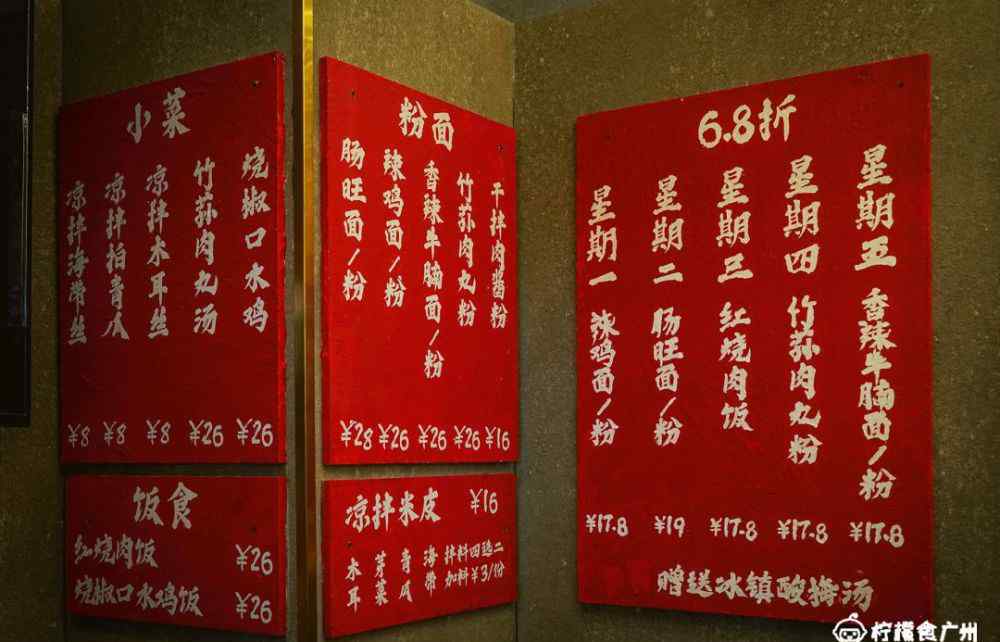 小菜
凉拌海带丝 ¥8
凉拌拍青瓜 ¥8
凉拌木耳丝 ¥8
竹荪肉丸汤 ¥26
烧椒口水鸡 ¥26
饭食
红烧肉饭 ¥26
烧椒口水鸡饭 ¥26
粉面
肠旺面/粉 ¥28
辣鸡面/粉 ¥26
香辣牛腩面/粉 ¥26
竹荪肉丸粉 ¥26
干拌肉酱粉 ¥16
凉拌米皮 ¥16
木耳
芽菜
青瓜
海带
拌料四选二
加料¥3/份
6.8折
星期一 辣鸡面/粉 ¥17.8
星期二 肠旺面/粉 ¥19
星期三 红烧肉饭 ¥17.8
星期四 竹荪肉丸粉 ¥17.8
星期五 香辣牛腩面/粉 ¥17.8
赠送冰镇酸梅汤
柠檬食广州